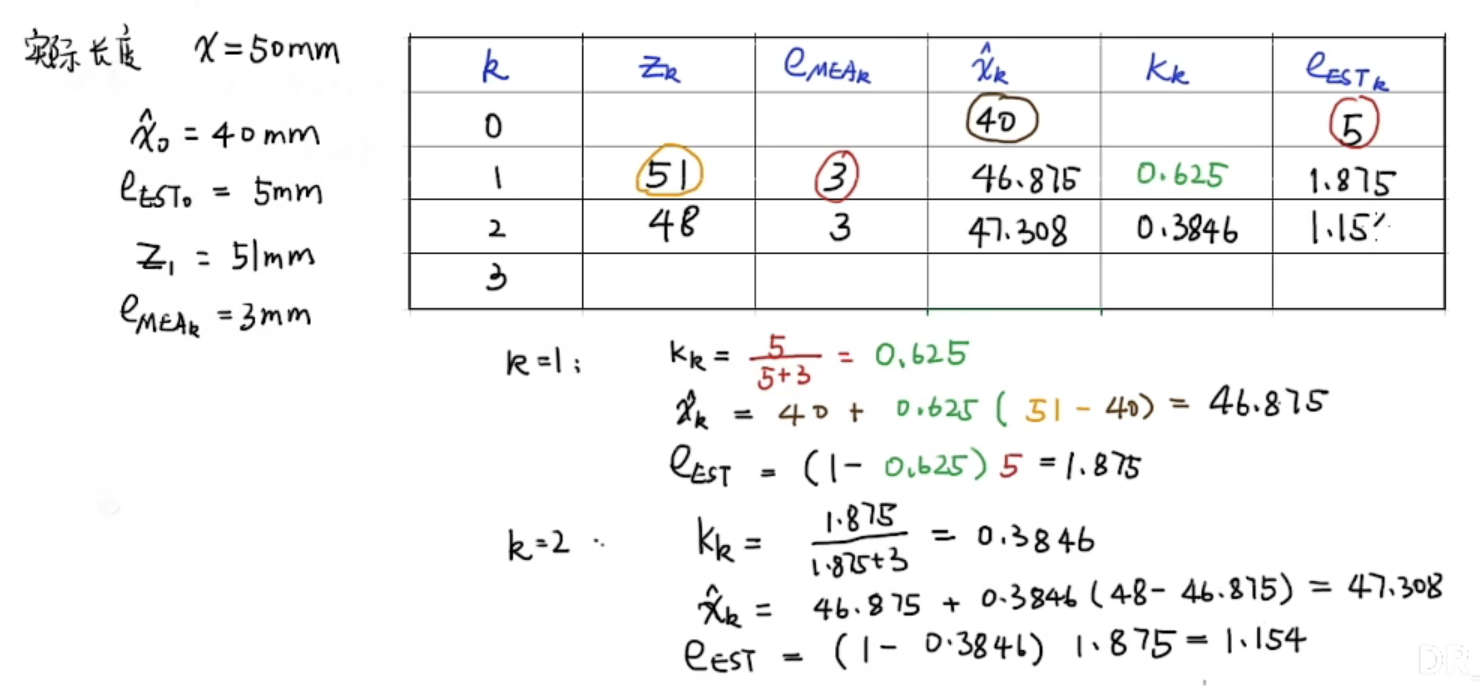 实际长度 x = 50mm
x̂₀ = 40mm
e_EST₀ = 5mm
z₁ = 51mm
e_MEAk = 3mm
k z_k e_MEAk x̂_k K_k e_ESTk
0 40 5
1 51 3 46.875 0.625 1.875
2 48 3 47.308 0.3846 1.15
3
k=1: K_k = 5/(5+3) = 0.625
x̂_k = 40 + 0.625 (51 - 40) = 46.875
e_EST = (1 - 0.625) 5 = 1.875
k=2: K_k = 1.875/(1.875+3) = 0.3846
x̂_k = 46.875 + 0.3846 (48 - 46.875) = 47.308
e_EST = (1 - 0.3846) 1.875 = 1.154
DR_